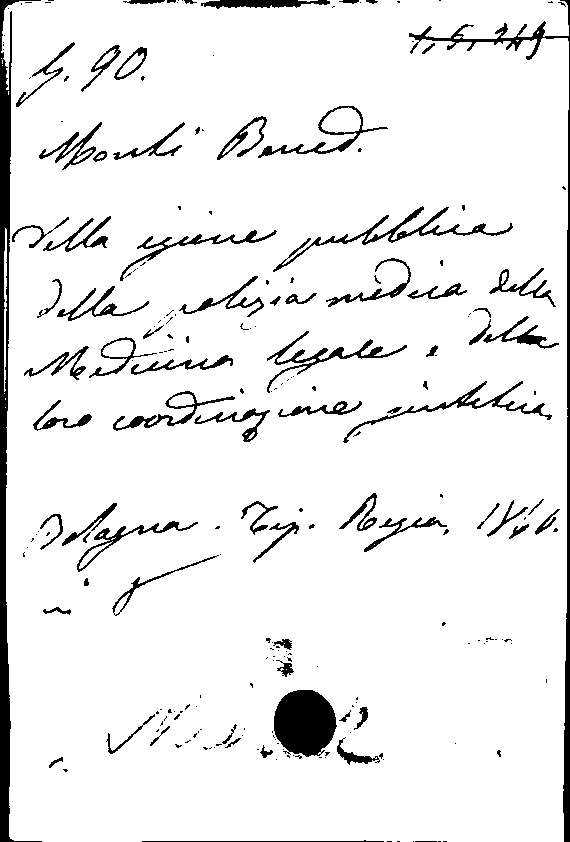 1, 5, 249
G. 90.
Monti Bened.
Della igiene pubblica
della polizia medica della
Medicina legale e della
loro coordinazione scientifica
Bologna. Tip. Regia, 1846.
in